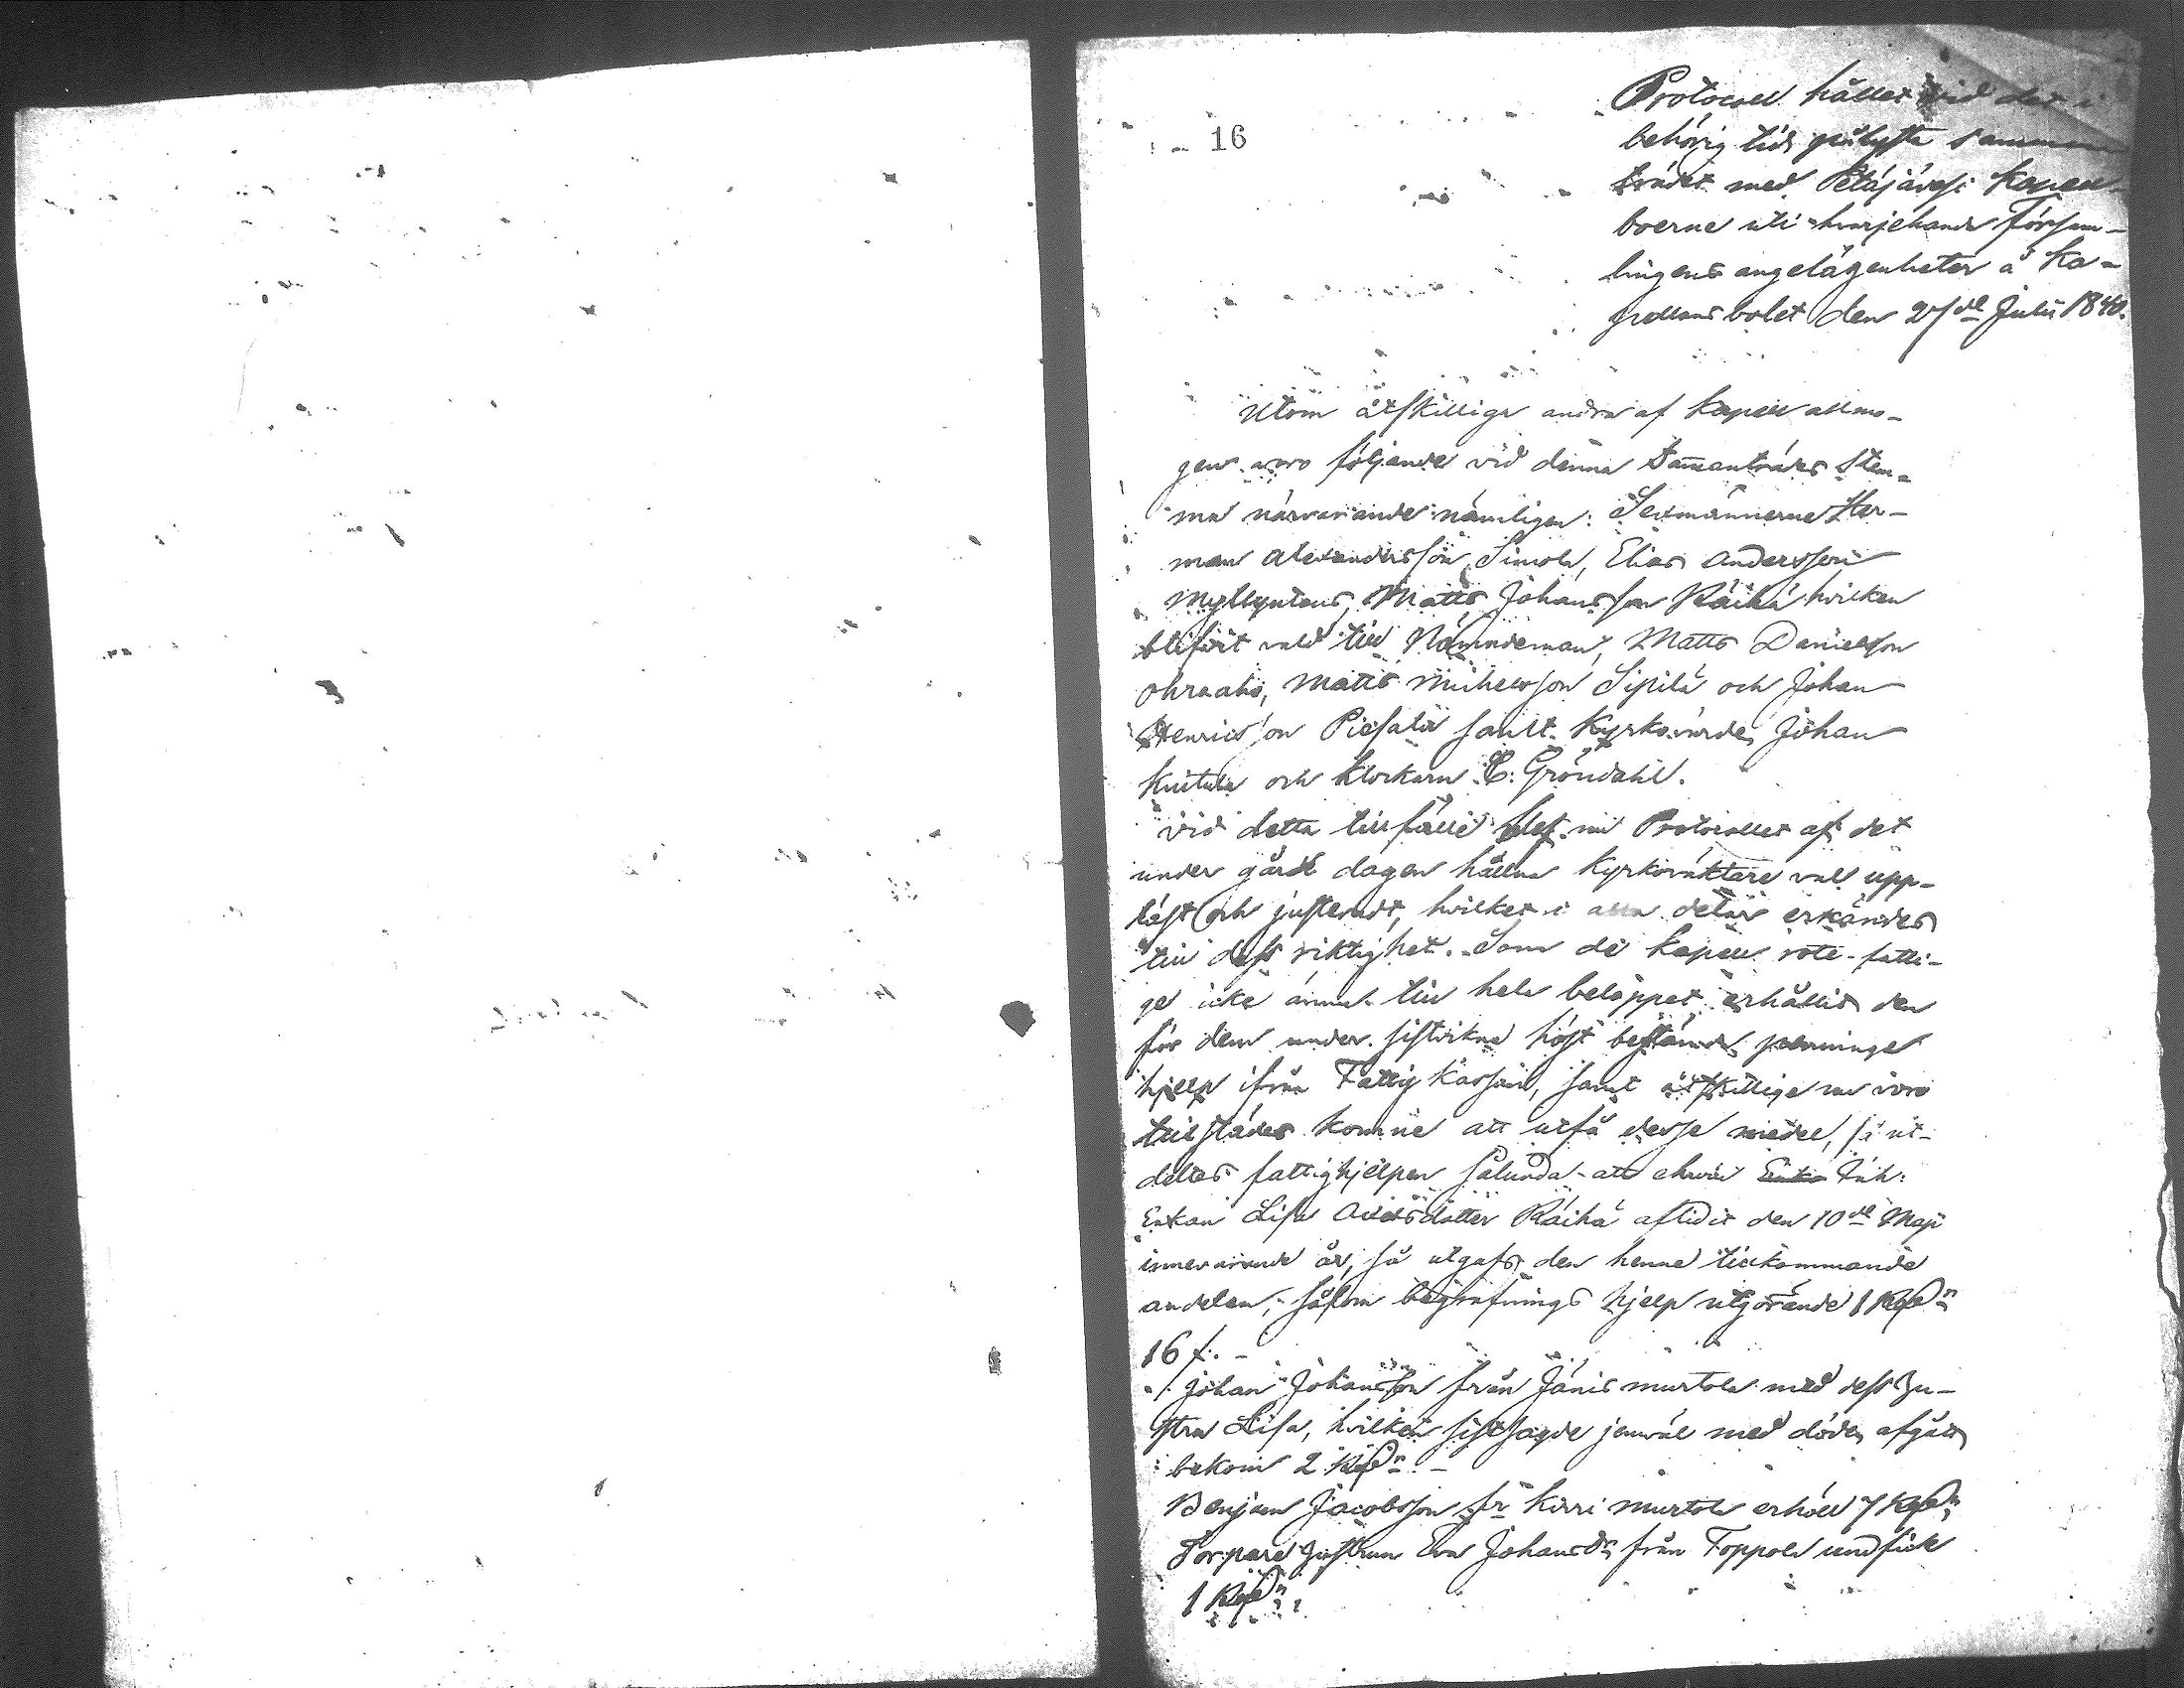 16
Protocoll hållet vid det i
behörig tid pålysta samman
trädet med Petäjävesi Kapell-
boerne uti hvarjehanda Försam-
lingens angelägenheter å Ka-
pellans bolet den 27de Julii 1840.
Utom åtskillige andra af Kapell allmo-
gen voro följande vid denna Sammanträdes Stäm-
ma närvarande nämligen: Sexmännerne Her-
man Alexandersson Simola, Elias Andersson
Myllyntaus, Matts Johansson Räihä hvilken
blifvit vald till Nämndeman, Matts Danielsson
Ohraaho, Matts Michelsson Sipilä och Johan
Henricsson Piesala samt Kyrkovärden Johan
Kuitula och Klockaren C: Gröndahl.
Vid detta tillfälle blef nu Protocollet af det
under gårdagen hållna Kyrkoväktare val upp-
läst och justeradt, hvilket i alla delar erkändes
till dess riktighet. Som de Kapell rote-fatti-
ge icke ännu till hela beloppet erhållit den
för dem under sistvikne höst bestämda penninge
hjelp ifrån Fattig Kassan, samt åtskillige nu voro
tillstädes komne att utfå desse medel, så ut-
deltes fattighjelpen sålunda att ehuru Enka Inh:
Enkan Lisa Axelsdotter Räihä aflidit den 10de Maji
innevarande år, så utgafs den henne tillkommande
andelen, såsom begrafnings hjelp utgörande 1 Rbl
16 k.
Johan Johansson från Jänismurtola med dess Hu-
stru Lisa, hvilken sistsagde jemväl med döden afgått
bekom 2 Rbl
Benjam Jacobsson fr Kirri murtola erhöll 7 Rbl
Torpare Hustrun Eva Johansdr från Toppola undfick
1 Rbl